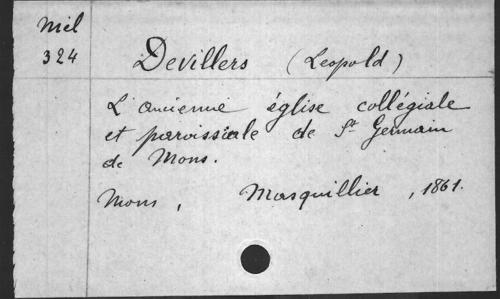 Mél
324
Devillers (Leopold)
L'ancienne église collégiale
et paroissiale de St Germain
de Mons.
Mons, Masquillier, 1861.